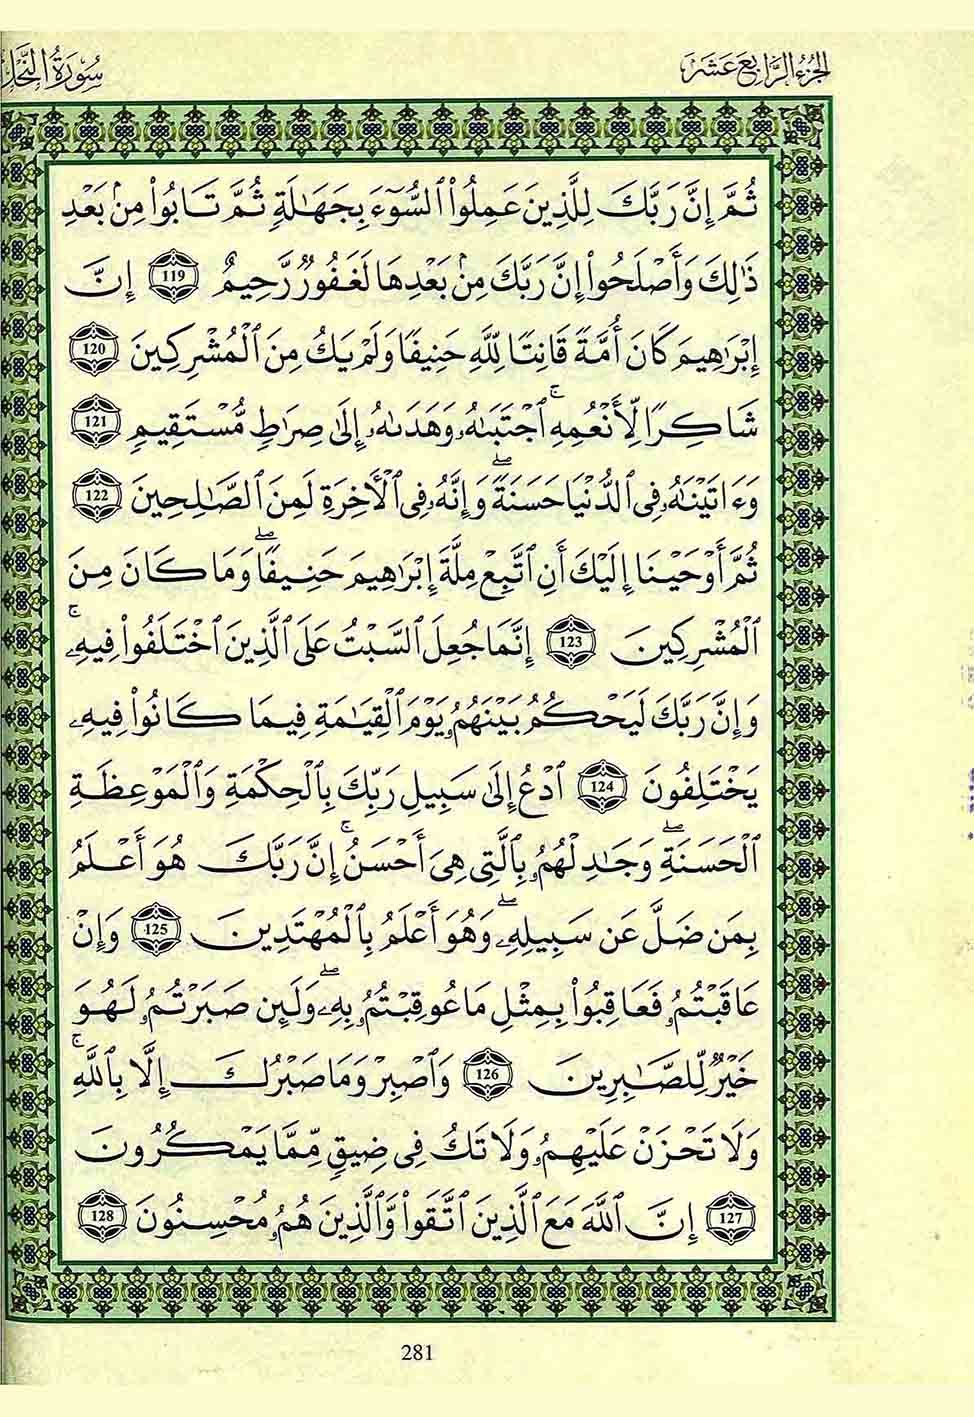 الجزء الرابع عشر
سورة النحل
ثُمَّ إِنَّ رَبَّكَ لِلَّذِينَ عَمِلُوا۟ ٱلسُّوٓءَ بِجَهَٰلَةٍ ثُمَّ تَابُوا۟ مِنۢ بَعْدِ
ذَٰلِكَ وَأَصْلَحُوٓا۟ إِنَّ رَبَّكَ مِنۢ بَعْدِهَا لَغَفُورٌ رَّحِيمٌ 119 إِنَّ
إِبْرَٰهِيمَ كَانَ أُمَّةً قَانِتًا لِّلَّهِ حَنِيفًا وَلَمْ يَكُ مِنَ ٱلْمُشْرِكِينَ 120
شَاكِرًا لِّأَنْعُمِهِ ۚ ٱجْتَبَىٰهُ وَهَدَىٰهُۥٓ إِلَىٰ صِرَٰطٍ مُّسْتَقِيمٍ 121
وَءَاتَيْنَٰهُۥ فِى ٱلدُّنْيَا حَسَنَةً ۖ وَإِنَّهُۥ فِى ٱلْأَخِرَةِ لَمِنَ ٱلصَّٰلِحِينَ 122
ثُمَّ أَوْحَيْنَا إِلَيْكَ أَنِ ٱتَّبِعْ مِلَّةَ إِبْرَٰهِيمَ حَنِيفًا ۖ وَمَا كَانَ مِنَ
ٱلْمُشْرِكِينَ 123 إِنَّمَا جُعِلَ ٱلسَّبْتُ عَلَى ٱلَّذِينَ ٱخْتَلَفُوا۟ فِيهِۦ ۚ
وَإِنَّ رَبَّكَ لَيَحْكُمُ بَيْنَهُمُۥ يَوْمَ ٱلْقِيَٰمَةِ فِيمَا كَانُوا۟ فِيهِۦ
يَخْتَلِفُونَ 124 ٱدْعُ إِلَىٰ سَبِيلِ رَبِّكَ بِٱلْحِكْمَةِ وَٱلْمَوْعِظَةِ
ٱلْحَسَنَةِ ۖ وَجَٰدِلْهُمُۥ بِٱلَّتِى هِىَ أَحْسَنُ ۚ إِنَّ رَبَّكَ هُوَ أَعْلَمُ
بِمَن ضَلَّ عَن سَبِيلِهِۦ ۖ وَهُوَ أَعْلَمُ بِٱلْمُهْتَدِينَ 125 وَإِنْ
عَاقَبْتُمُۥ فَعَاقِبُوا۟ بِمِثْلِ مَا عُوقِبْتُمُۥ بِهِۦ ۖ وَلَئِن صَبَرْتُمُۥ لَهُوَ
خَيْرٌ لِّلصَّٰبِرِينَ 126 وَٱصْبِرْ وَمَا صَبْرُكَ إِلَّا بِٱللَّهِ ۚ
وَلَا تَحْزَنْ عَلَيْهِمُۥ وَلَا تَكُ فِى ضِيقٍ مِّمَّا يَمْكُرُونَ
127 إِنَّ ٱللَّهَ مَعَ ٱلَّذِينَ ٱتَّقَوا۟ وَّٱلَّذِينَ هُمُۥ مُحْسِنُونَ 128
281